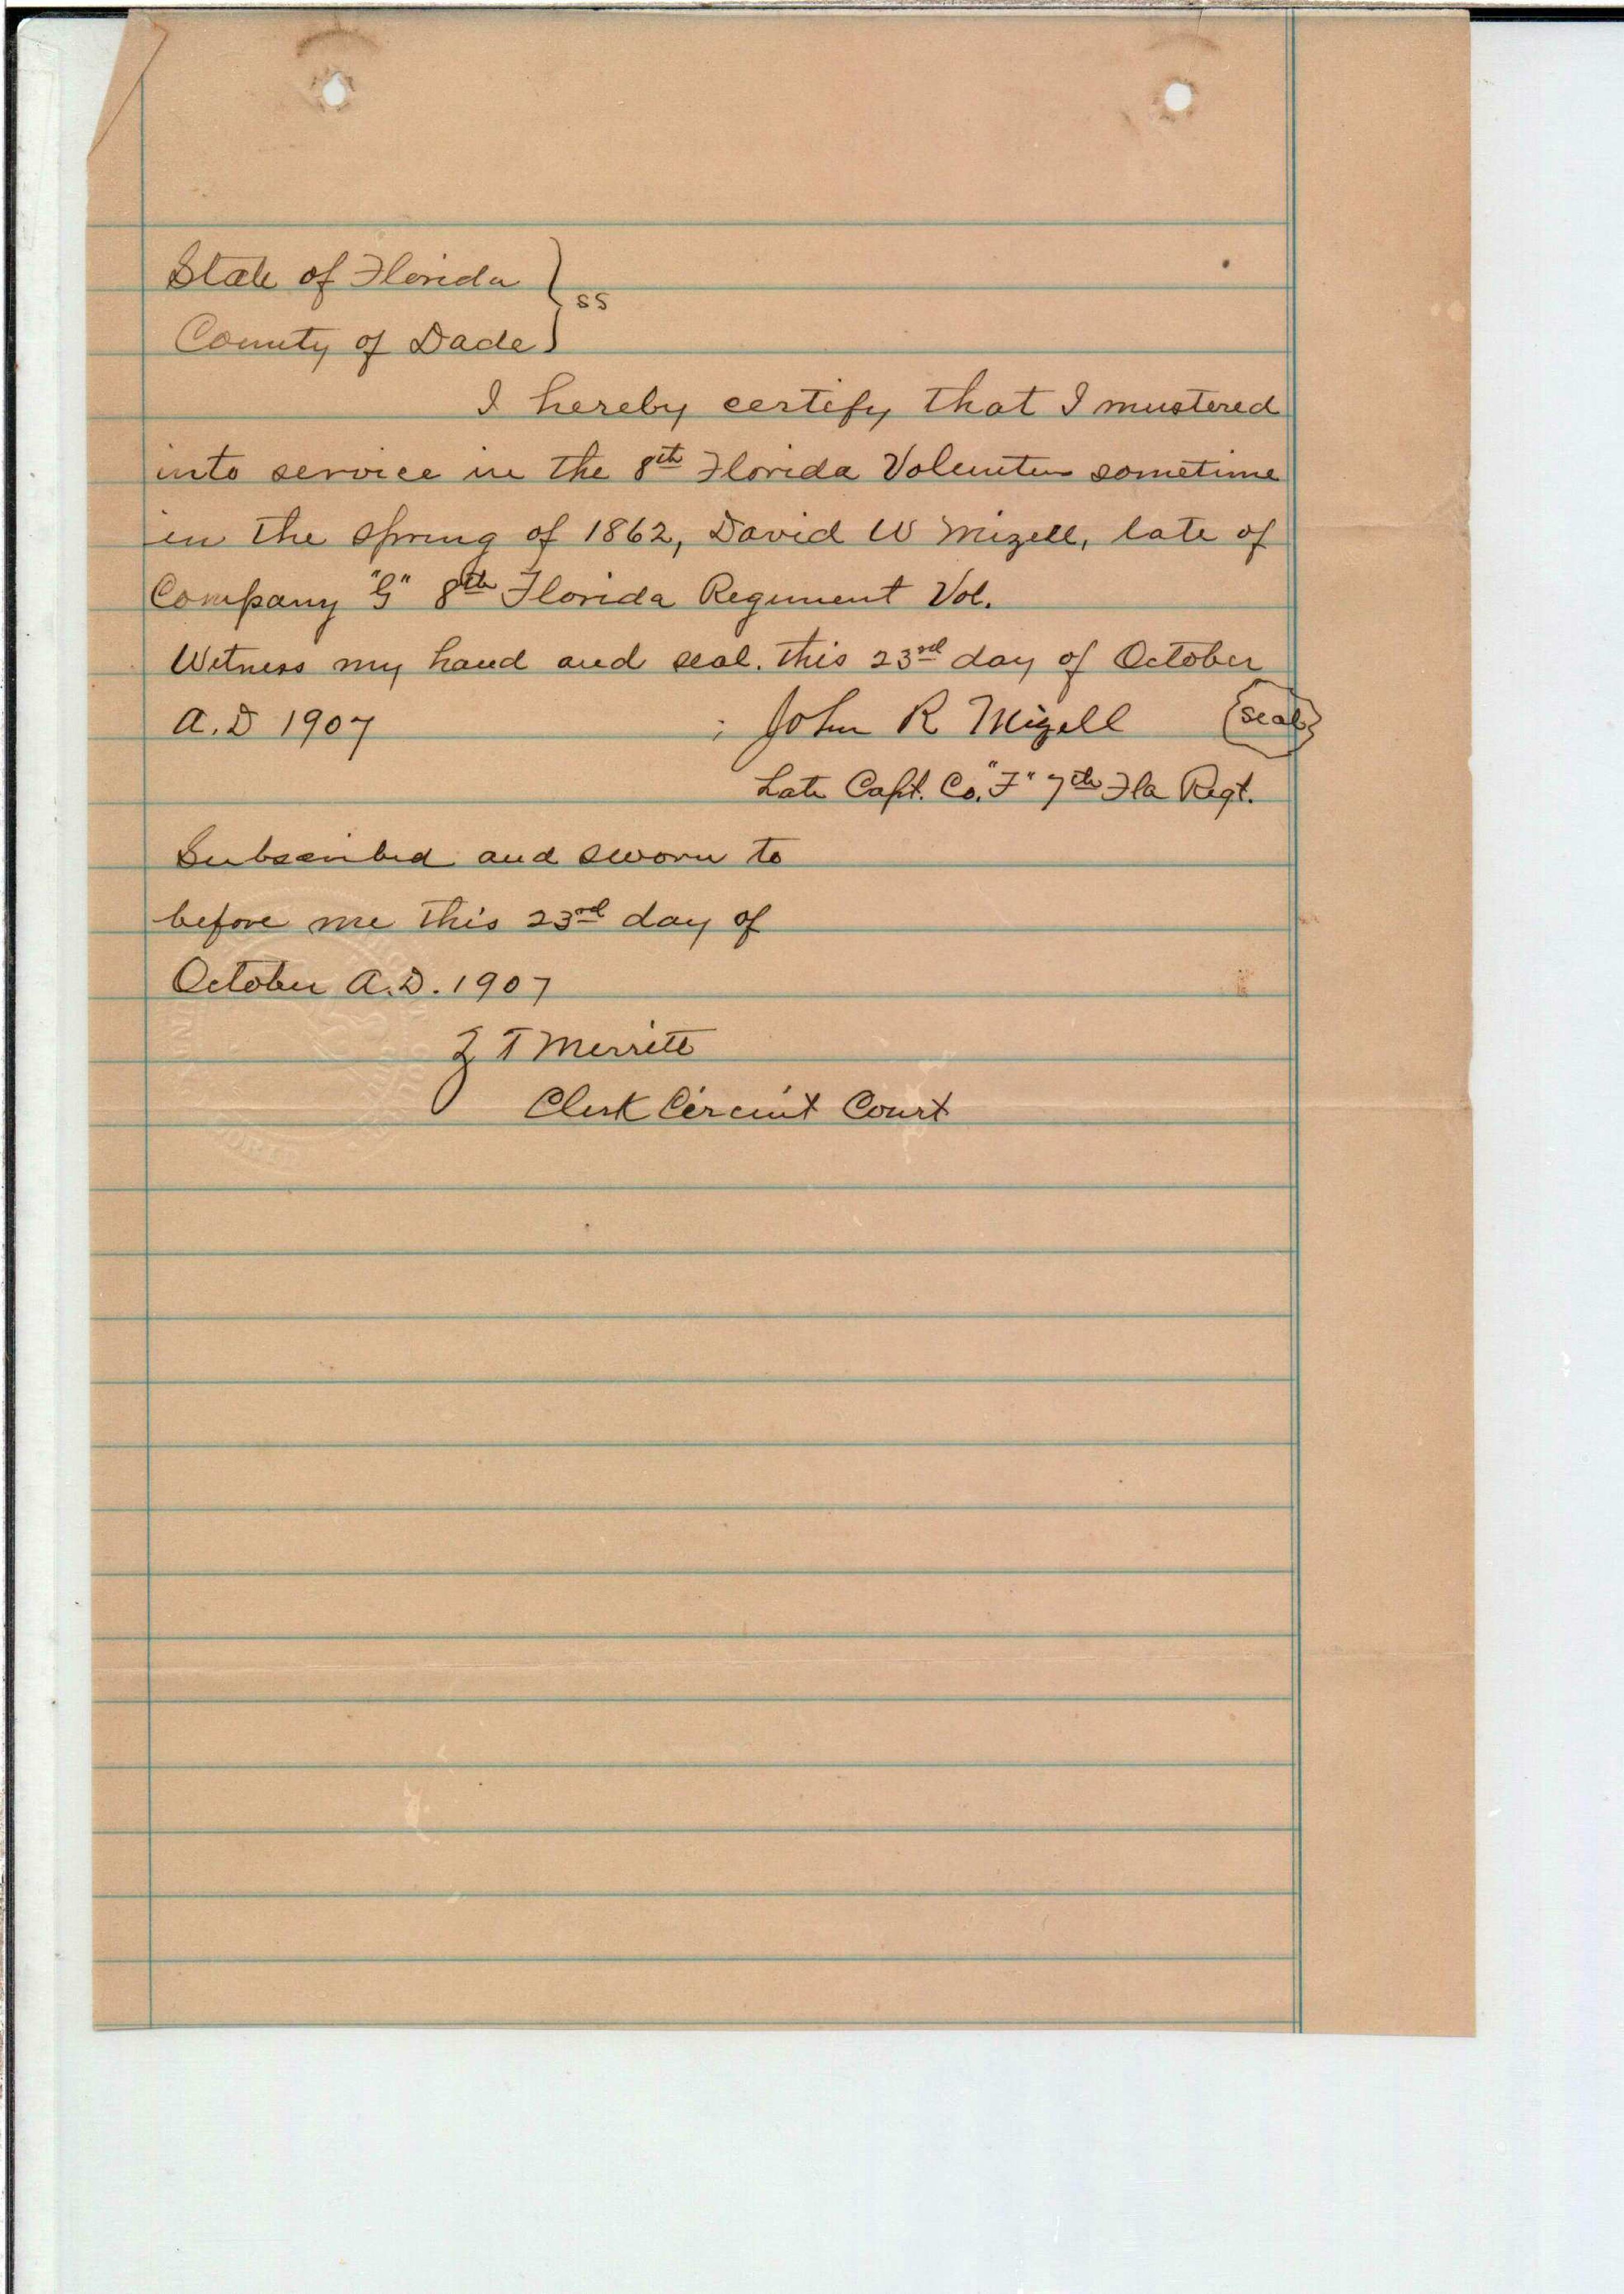 State of Florida } ss
County of Dade
I hereby certify that I mustered
into service in the 8th Florida Volunteers sometime
in the spring of 1862, David W Mizell, late of
Company "G" 8th Florida Regiment Vol.
Witness my hand and seal. this 23rd day of October
A.D 1907 ; John R Mizell (seal)
Late Capt. Co. "F" 7th Fla Regt.
Subscribed and sworn to
before me this 23rd day of
October A.D. 1907
Z T Merritt
Clerk Circuit Court